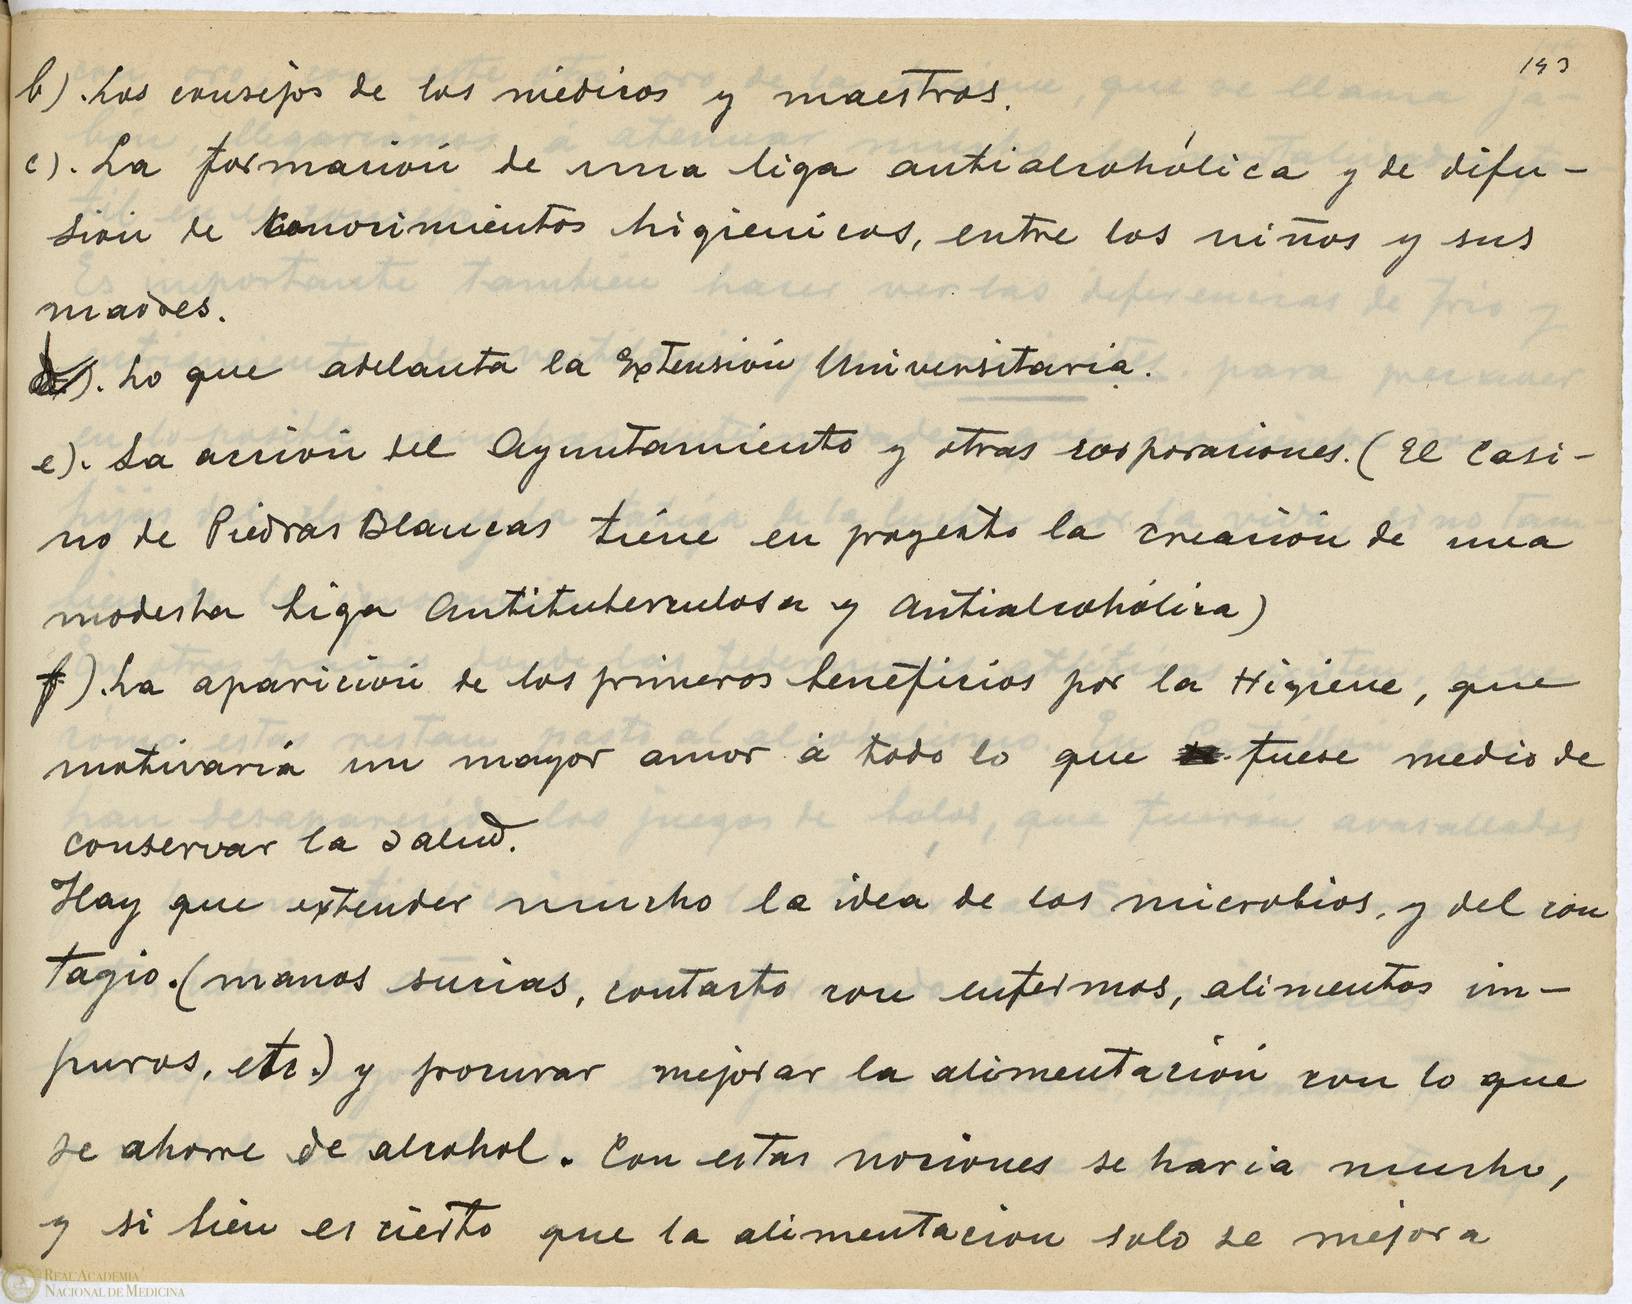 193
b). Los consejos de los médicos y maestros.
c). La formación de una liga antialcohólica y de difu-
sión de conocimientos higienicos, entre los niños y sus
madres.
d). Lo que adelanta la Extensión Universitaria.
e). La acción del Ayuntamiento y otras corporaciones. (El Casi-
no de Piedras Blancas tiene en proyecto la creación de una
modesta Liga Antituberculosa y Antialcohólica)
f). La aparición de los primeros beneficios por la Higiene, que
motivaría un mayor amor á todo lo que fuese medio de
conservar la salud.
Hay que extender mucho la idea de los microbios, y del con
tagio. (manos sucias, contacto con enfermos, alimentos im-
puros, etc.) y procurar mejorar la alimentación con lo que
se ahorre de alcohol. Con estas nociones se haria mucho,
y si bien es cierto que la alimentacion solo se mejora
REAL ACADEMIA
NACIONAL DE MEDICINA